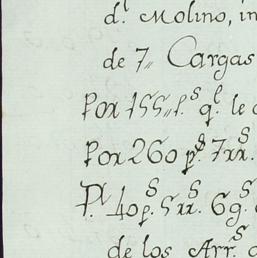 d.l Molino, in
de 7,, Cargas
Por 155,,f.s q.l le
Por 260 p.s 7rr.s
P.l 40p.s 5rr.s 6g.s
de los Arr.s